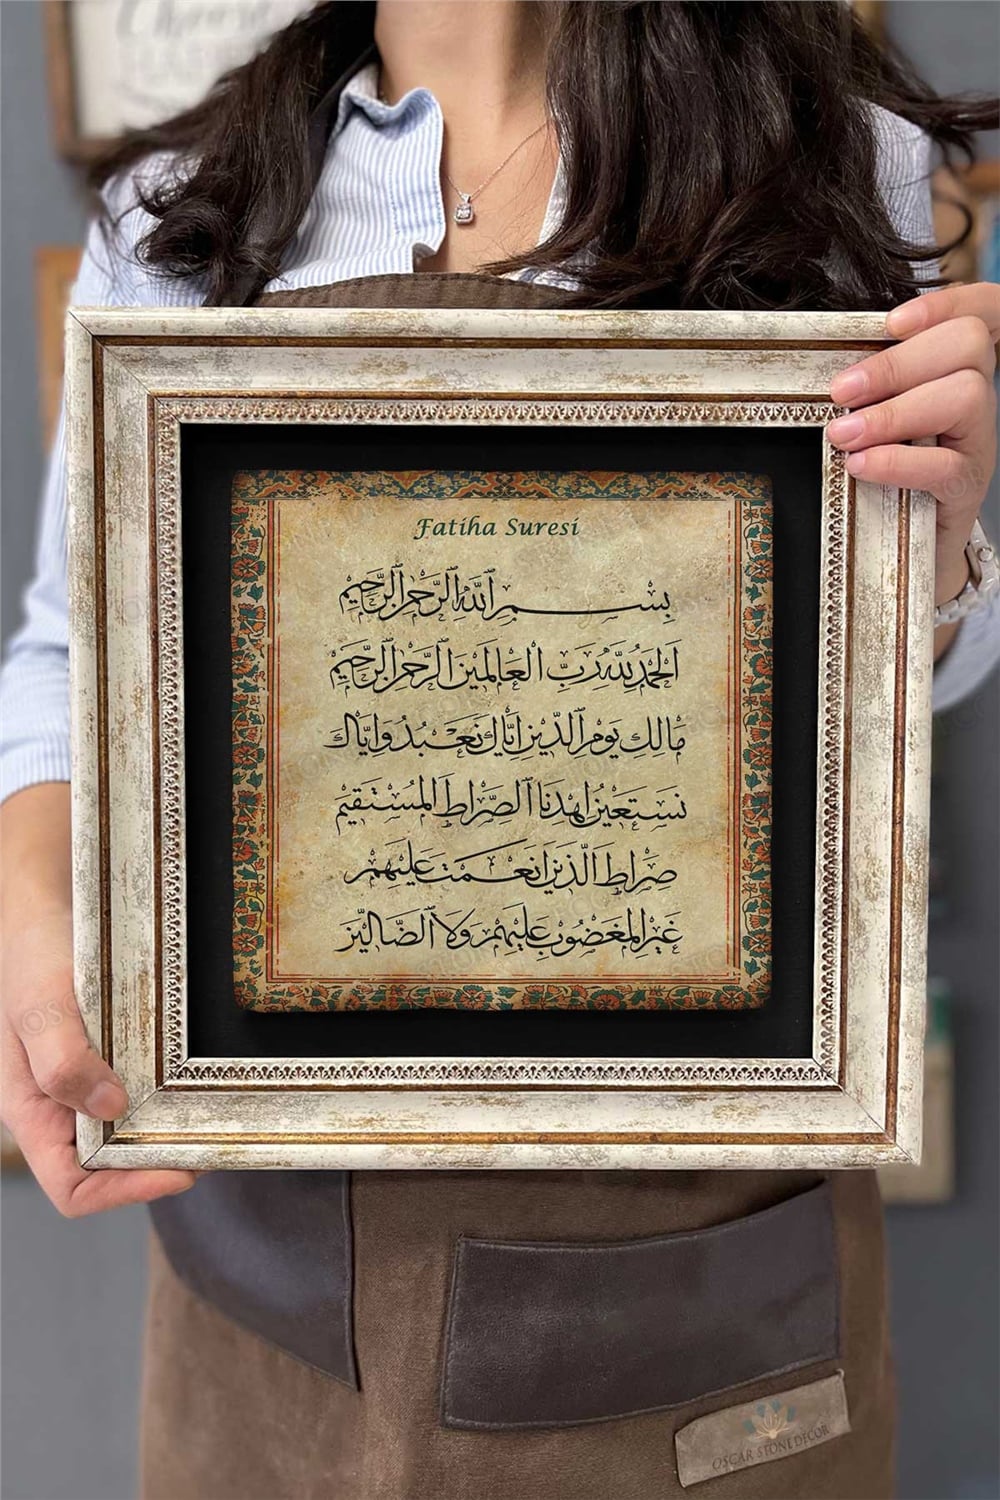 Fatiha Suresi
بِسْمِ ٱللَّهِ ٱلرَّحْمٰنِ ٱلرَّحِيمِ
اَلْحَمْدُ لِلَّهِ رَبِّ الْعَالَمِينَ ٱلرَّحْمٰنِ ٱلرَّحِيمِ
مَالِكِ يَوْمِ ٱلدِّينِ اِيَّاكَ نَعْبُدُ وَاِيَّاكَ
نَسْتَعِينُ اِهْدِنَا ٱلصِّرَاطَ الْمُسْتَقِيمَ
صِرَاطَ الَّذِينَ اَنْعَمْتَ عَلَيْهِمْ
غَيْرِ الْمَغْضُوبِ عَلَيْهِمْ وَلَا ٱلضَّالِّينَ
OSCAR STONE DECOR